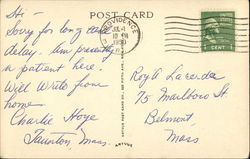 POST CARD
Hi
Sorry for long
delay. Am presently
a patient here.
Will Write from
home
Charlie Hoye
Taunton, Mass.
PROVIDENCE
JUL
PM
1 CENT
Roy
75 Marlboro St
Belmont
Mass